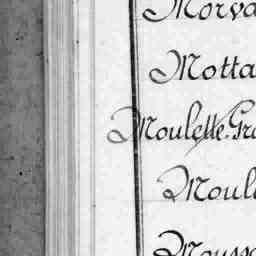 Morva
Motta
Moulette-Gra
Moul
Mousse